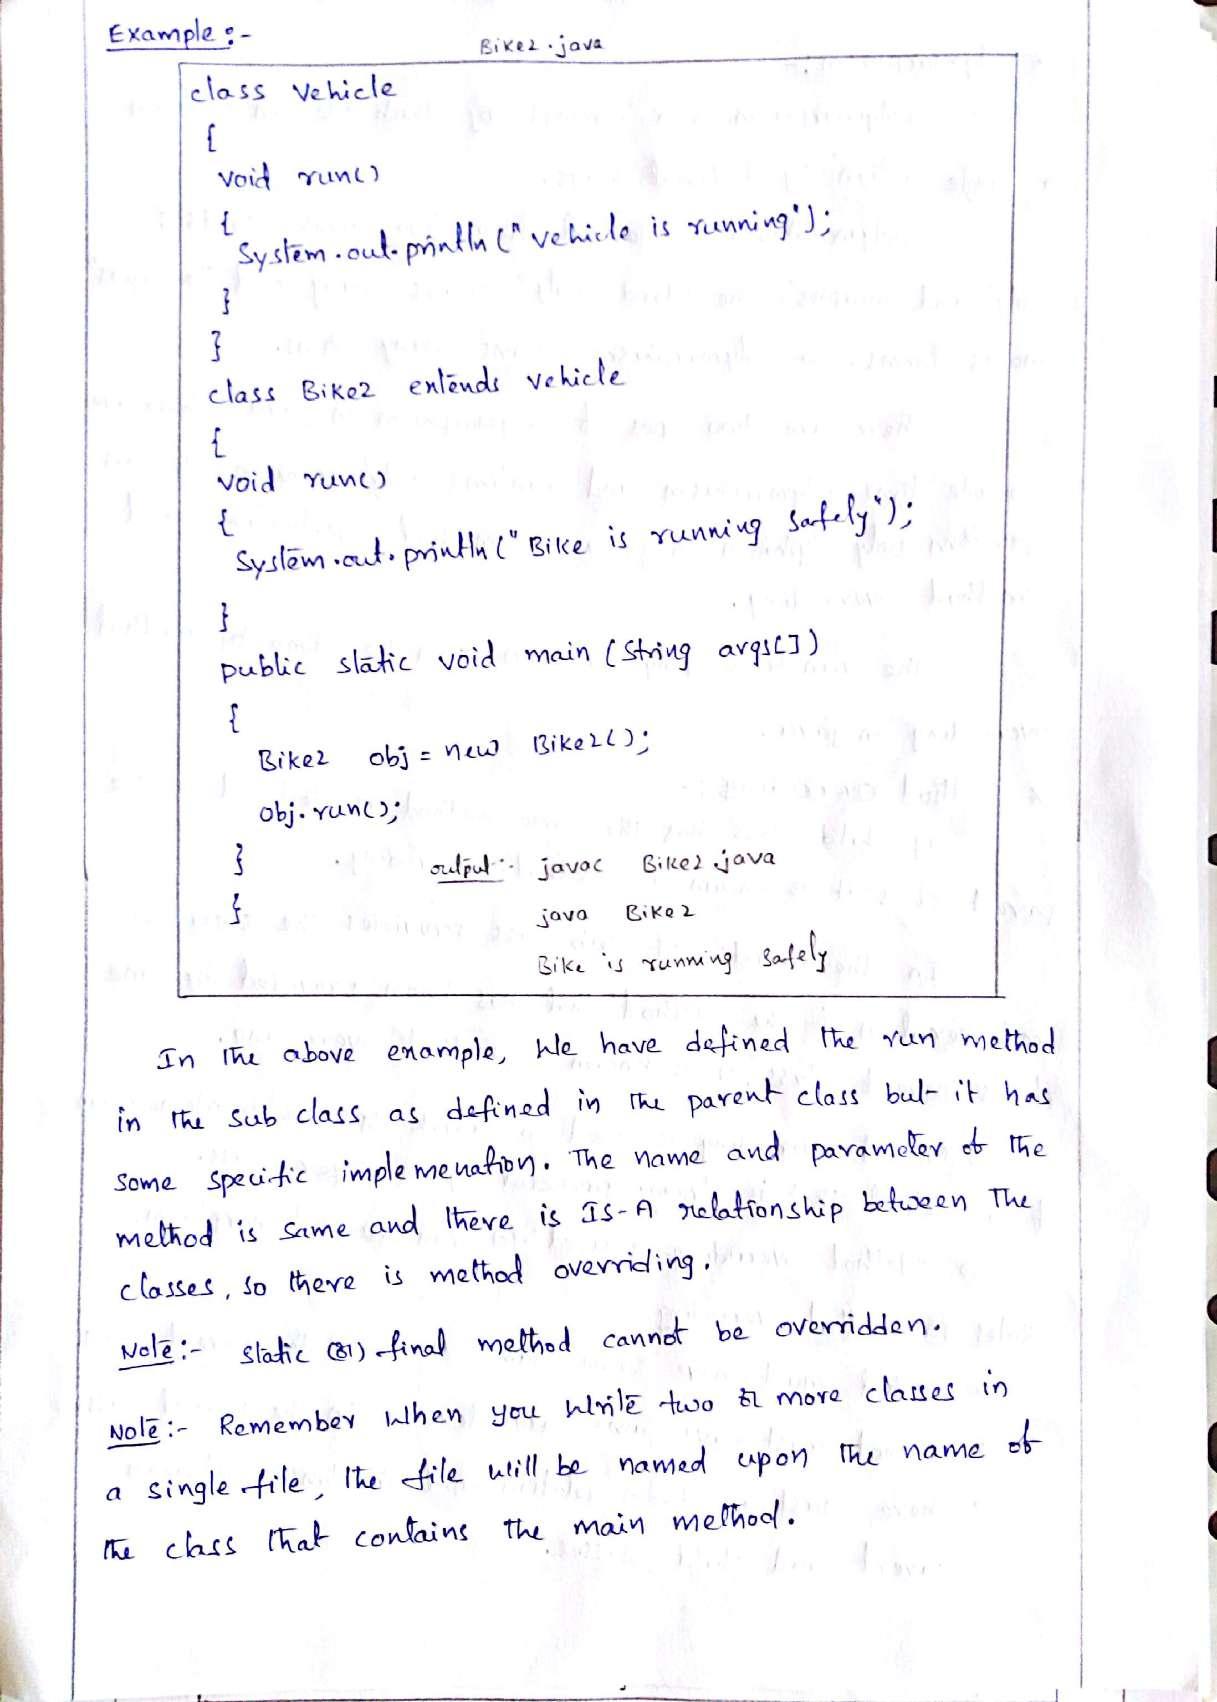 Example :-
Bike2.java
class Vehicle
{
void run()
{
System.out.println("vehicle is running");
}
}
class Bike2 extends vehicle
{
void run()
{
System.out.println("Bike is running safely");
}
public static void main (String args[])
{
Bike2 obj = new Bike2();
obj.run();
}
output :- javac Bike2.java
}
java Bike2
Bike is running safely
In the above example, We have defined the run method
in the sub class as defined in the parent class but it has
some specific implemenation. The name and parameter of the
method is same and there is IS-A relationship between The
classes, so there is method overriding.
Note :- static (or) final method cannot be overridden.
Note :- Remember When you write two or more classes in
a single file, the file will be named upon the name of
the class that contains the main method.